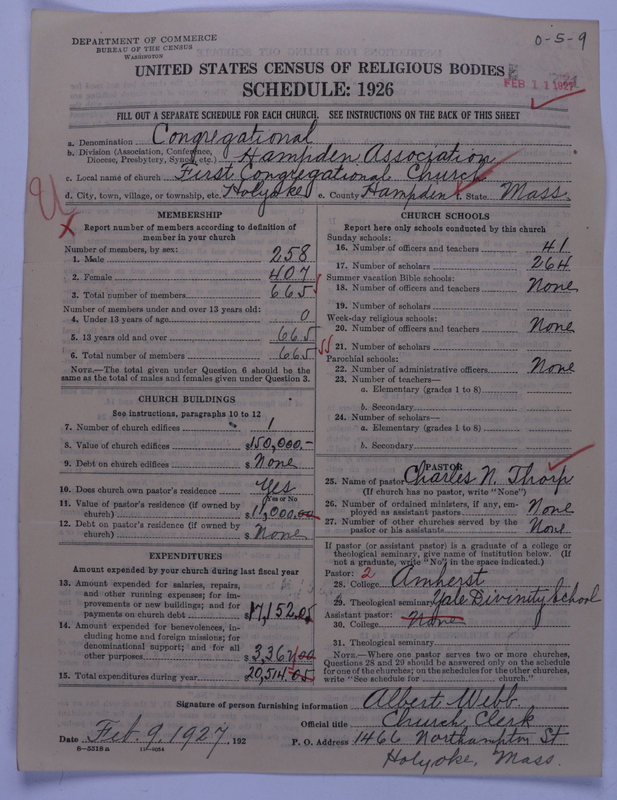 DEPARTMENT OF COMMERCE
BUREAU OF THE CENSUS
WASHINGTON
0-5-9
UNITED STATES CENSUS OF RELIGIOUS BODIES
SCHEDULE: 1926
FEB 11 1927
FILL OUT A SEPARATE SCHEDULE FOR EACH CHURCH. SEE INSTRUCTIONS ON THE BACK OF THIS SHEET
a. Denomination Congregational
b. Division (Association, Conference, Diocese, Presbytery, Synod, etc.) Hampden Association
c. Local name of church First Congregational Church
d. City, town, village, or township, etc. Holyoke e. County Hampden f. State Mass.
MEMBERSHIP
Report number of members according to definition of
member in your church
Number of members, by sex:
1. Male 258
2. Female 407
3. Total number of members 665
Number of members under and over 13 years old:
4. Under 13 years of age 0
5. 13 years old and over 665
6. Total number of members 665
NOTE.—The total given under Question 6 should be the
same as the total of males and females given under Question 3.
CHURCH BUILDINGS
See instructions, paragraphs 10 to 12
7. Number of church edifices 1
8. Value of church edifices $150,000.-
9. Debt on church edifices $ None
10. Does church own pastor's residence Yes
Yes or No
11. Value of pastor's residence (if owned by
church) $ 11,000.00
12. Debt on pastor's residence (if owned by
church) $ None
EXPENDITURES
Amount expended by your church during last fiscal year
13. Amount expended for salaries, repairs,
and other running expenses; for im-
provements or new buildings; and for
payments on church debt $17,152.05
14. Amount expended for benevolences, in-
cluding home and foreign missions; for
denominational support; and for all
other purposes $ 3,362.00
15. Total expenditures during year 20,514.05
CHURCH SCHOOLS
Report here only schools conducted by this church
Sunday schools:
16. Number of officers and teachers 41
17. Number of scholars 264
Summer vacation Bible schools:
18. Number of officers and teachers None
19. Number of scholars
Week-day religious schools:
20. Number of officers and teachers None
21. Number of scholars
Parochial schools:
22. Number of administrative officers None
23. Number of teachers—
a. Elementary (grades 1 to 8)
b. Secondary
24. Number of scholars—
a. Elementary (grades 1 to 8)
b. Secondary
PASTOR
25. Name of pastor Charles N. Thorp
(If church has no pastor, write "None")
26. Number of ordained ministers, if any, em-
ployed as assistant pastors None
27. Number of other churches served by the
pastor or his assistants None
If pastor (or assistant pastor) is a graduate of a college or
theological seminary, give name of institution below. (If
not a graduate, write "No" in the space indicated.)
Pastor: 2
28. College Amherst
29. Theological seminary Yale Divinity School
Assistant pastor:
30. College None
31. Theological seminary
NOTE.—Where one pastor serves two or more churches,
Questions 28 and 29 should be answered only on the schedule
for one of the churches; on the schedules for the other churches,
write "See schedule for church."
Signature of person furnishing information Albert Webb
Official title Church Clerk
Date Feb. 9, 1927, 192 P. O. Address 1466 Northampton St
8-5318a 11-9084
Holyoke, Mass.